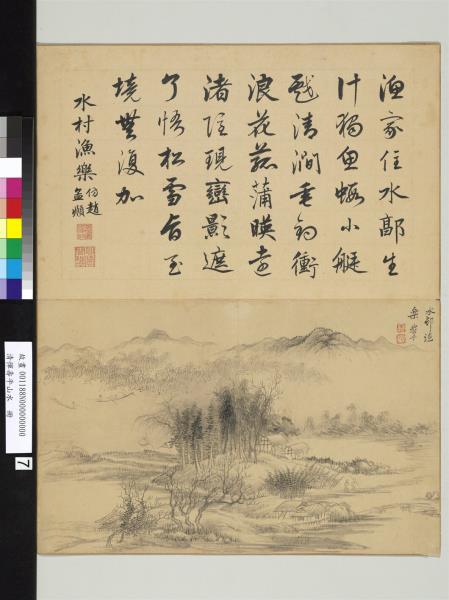 漁家住水鄉生
計獨魚蝦小艇
戲清澗垂釣衝
浪花菰蒲暎遠
渚隱現巒影遮
了悟松雪旨至
境無復加
水村漁樂
仿趙
孟頫
水邨漁
樂 壽平
故畫001188N000000000
清惲壽平山水 冊
7